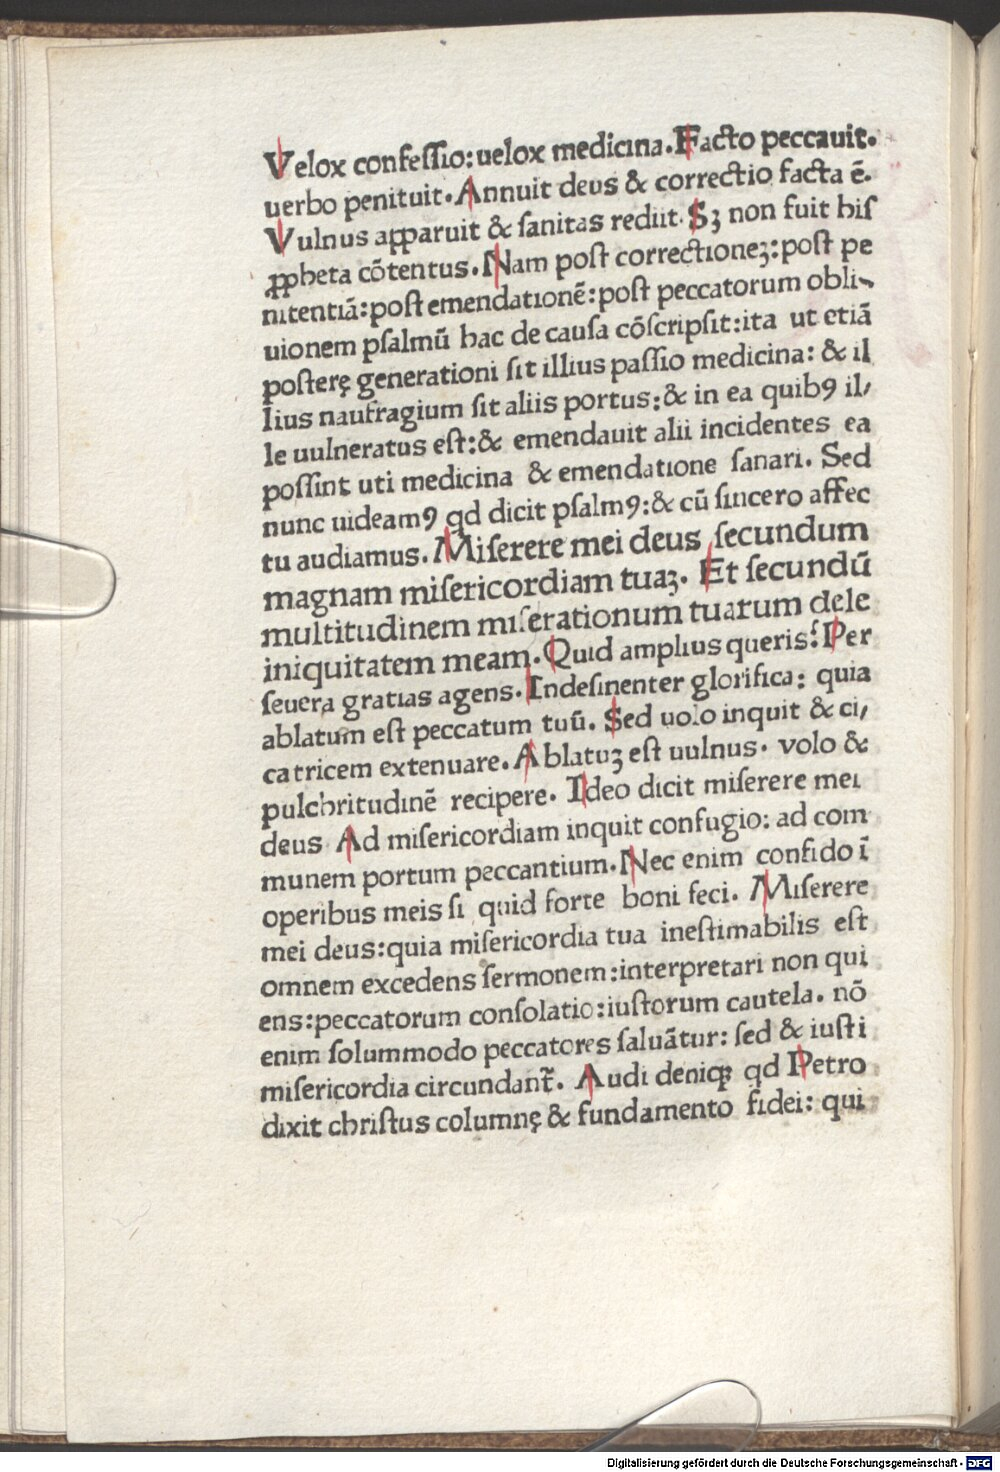 Velox confeſſio:uelox medicina.Facto peccauit.
uerbo penituit.Annuit deus & correctio facta ē.
Vulnus apparuit & ſanitas rediit.Sꝫ non fuit hiſ
ꝓpheta cōtentus.Nam poſt correctioneꝫ:poſt pe
nitentiā:poſt emendationē:poſt peccatorum obli-
uionem pſalmū hac de cauſa cōſcripſit:ita ut etiā
poſterę generationi ſit illius paſſio medicina: & il
lius naufragium ſit aliis portus:& in ea quibꝰ il/
le uulneratus eſt:& emendauit alii incidentes ea
poſſint uti medicina & emendatione ſanari. Sed
nunc uideamꝰ qd dicit pſalmꝰ:& cū ſincero affec
tu audiamus.Miſerere mei deus ſecundum
magnam miſericordiam tuaꝫ. Et ſecundū
multitudinem miſerationum tuarum dele
iniquitatem meam.Quid amplius queris? Per
ſeuera gratias agens.Indeſinenter glorifica: quia
ablatum eſt peccatum tuū. Sed uolo inquit & ci/
catricem extenuare.Ablatuꝫ eſt uulnus. volo &
pulchritudinē recipere. Ideo dicit miſerere mei
deus Ad miſericordiam inquit confugio: ad com
munem portum peccantium.Nec enim confido ī
operibus meis ſi quid forte boni feci. Miſerere
mei deus:quia miſericordia tua ineſtimabilis eſt
omnem excedens ſermonem:interpretari non qui
ens:peccatorum conſolatio:iuſtorum cautela. nō
enim ſolummodo peccatores ſaluātur: ſed & iuſti
miſericordia circundant̄. Audi deniqꝫ qd Petro
dixit chriſtus columnę & fundamento fidei: qui
Digitalisierung gefördert durch die Deutsche Forschungsgemeinschaft - DFG